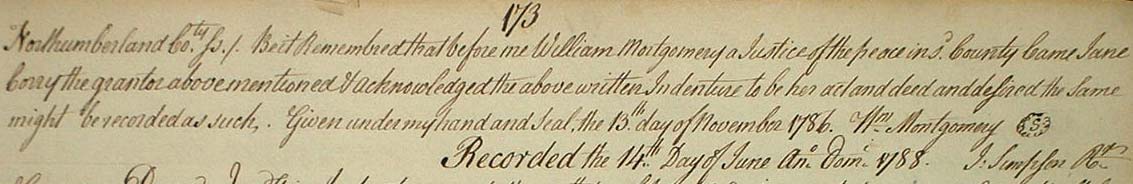 173
Northumberland Co.ty ss./ Be it Remembred that before me William Montgomery a Justice of the peace in s.d County Came Jane
Corry the grantor above mentioned & acknowledged the above written Indenture to be her act and deed and desired the same
might be recorded as such,. Given under my hand and Seal, the 13.th day of November 1786. Wm. Montgomery S
Recorded the 14.th Day of June An.o Dom.i 1788. J: Simpson Rr